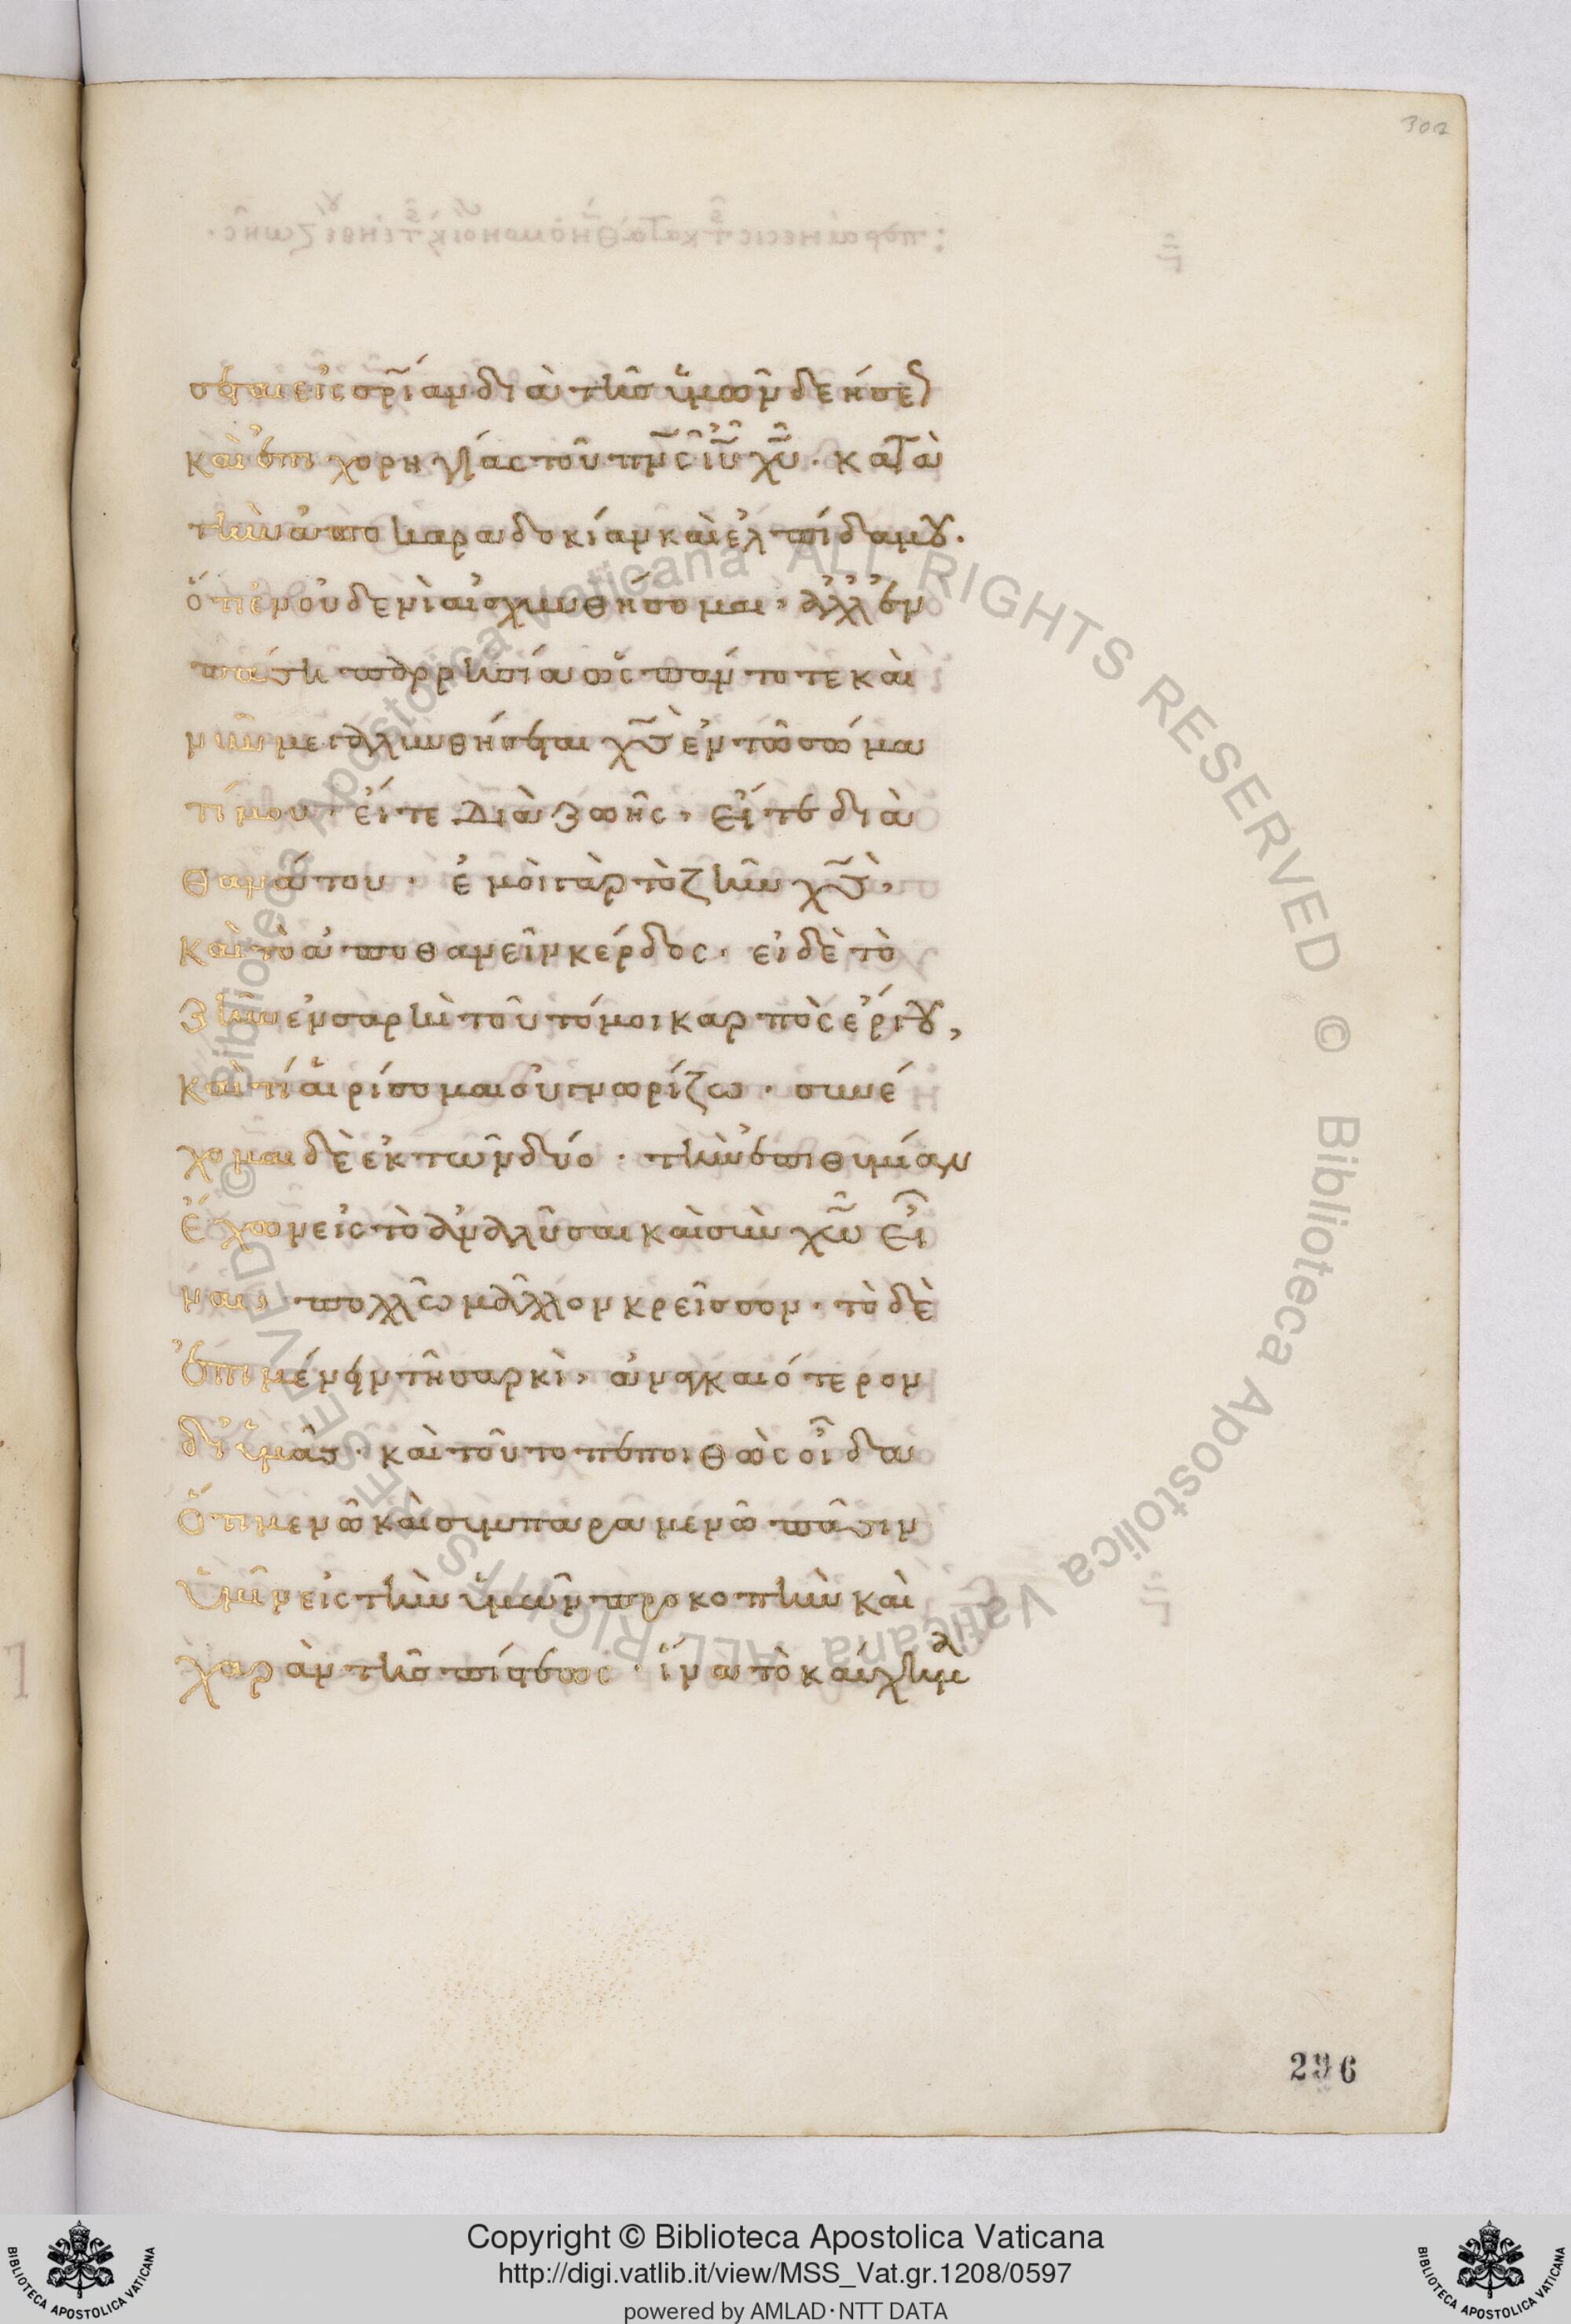 302
σεται εἰς σ̅ρ̅ίαν διὰ τῆς ὑμῶν δεήσε
καὶ ἐπιχορηγίας τοῦ π̅ν̅ς ἰ̅υ̅ χ̅υ̅· κατὰ
τὴν ἀποκαραδοκίαν καὶ ἐλπίδα μου·
ὅτι ἐν οὐδενὶ αἰσχυνθήσομαι, ἀλλ' ἐν
πάσῃ παρρησία ὡς πάντοτε καὶ
νῦν μεγαλυνθήσεται χ̅ς̅ ἐν τῶ σώμα
τί μου· εἴτε διὰ ζωῆς, εἴτε διὰ
θανάτου· ἐμοὶ γὰρ τὸ ζῆν χ̅ς̅,
καὶ τὸ ἀποθανεῖν κέρδος· εἰ δὲ τὸ
ζῆν ἐν σαρκὶ τοῦτό μοι καρπὸς ἔργου,
καὶ τί αἱρήσομαι οὐ γνωρίζω· συνέ
χομαι δὲ ἐκ τῶν δύο· τὴν ἐπιθυμίαν
ἔχων εἰς τὸ ἀναλῦσαι καὶ σὺν χ̅ω̅ εἶ
ναι, πολλῶ μᾶλλον κρεῖσσον· τὸ δὲ
ἐπιμένειν τῆ σαρκὶ, ἀναγκαιότερον
δι' ὑμᾶς· καὶ τοῦτο πεποιθὼς οἶδα
ὅτι μενῶ καὶ συμπαραμενῶ πᾶσιν
ὑμῖν εἰς τὴν ὑμῶν προκοπὴν καὶ
χαρὰν τῆς πίστεως· ἵνα τὸ καύχημα
296
© Biblioteca Apostolica Vaticana ALL RIGHTS RESERVED © Biblioteca Apostolica Vaticana ALL RIGHTS RESERVED
Copyright © Biblioteca Apostolica Vaticana
http://digi.vatlib.it/view/MSS_Vat.gr.1208/0597
powered by AMLAD·NTT DATA
BIBLIOTECA APOSTOLICA VATICANA
BIBLIOTECA APOSTOLICA VATICANA